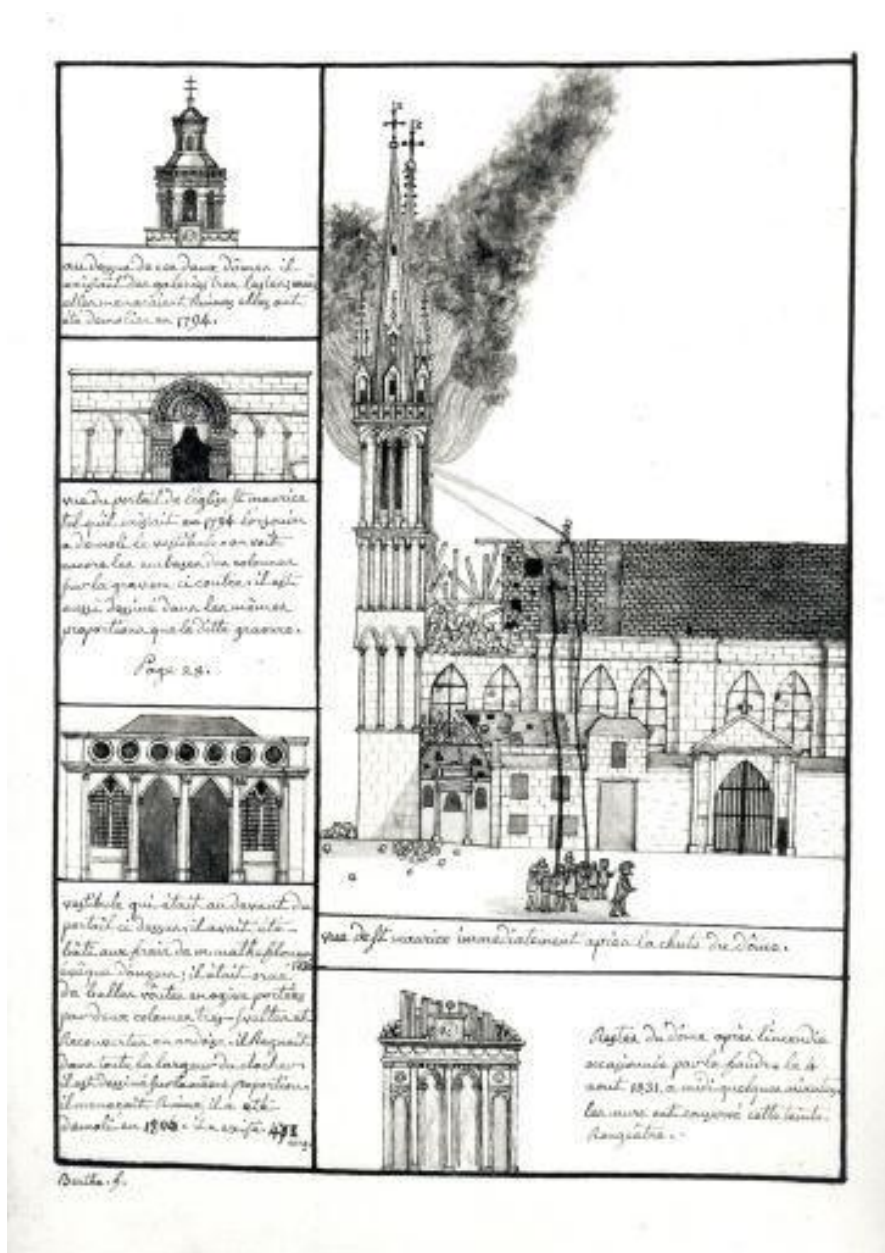 au dessus de ces deux dômes il
existait des galeries tres lestes, mais
elles menaraient Ruines elles ont
été demolies en 1794.
vue du portail de l'église St maurice
tel qu'il existait en 1794 lorsqu'on
a démoli le vestibule on voit
encore les embases des colonnes
par la gravure ci contre, il est
aussi dessiné dans les mêmes
proportions que la ditte gravure.
Page 28.
vestibule qui était au devant du
portail ci dessus, il avait été
bâti aux frais de m.
evêque d'angers; il était orné
de belles voûtes en ogive portées
par deux colonnes tres-sveltes et
Recouvertes en ardoise, il Regnait
dans toute la largeur du clocher
il est dessiné sur la même proportion
il menacait Ruine, il a été
démoli en il a existé
vue de St maurice immédiatement après la chute du Dôme.
Restes du dôme après l'incendie
occasionné par la foudre le 4
aout 1831. a midi quelques minutes,
les murs ont conservé cette teinte
Rougeâtre.-
Berthe. f.